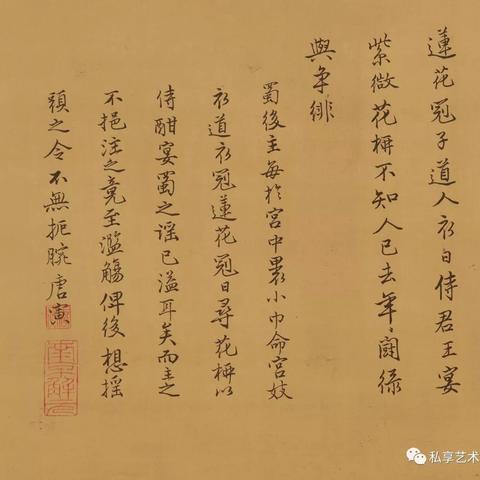 蓮花冠子道人衣日侍君王宴
紫微花柳不知人已去年年鬪綠
與爭緋
蜀後主每於宮中裹小巾命宮妓
衣道衣冠蓮花冠日尋花柳以
侍酣宴蜀之謠已溢耳矣而主之
不挹注之竟至濫觴俾後想搖
頭之令不無扼腕唐寅
南京解元
私享艺术